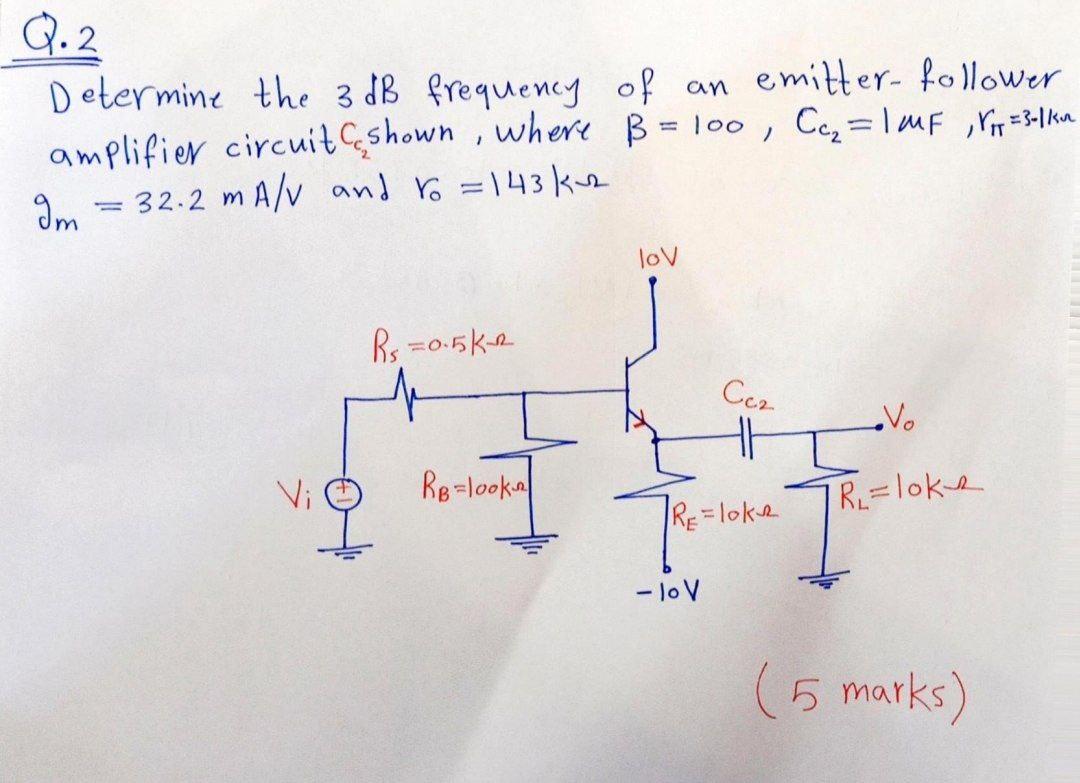 Q.2
Determine the 3 dB frequency of an emitter-follower
amplifier circuit Cc2 shown, where β = 100, Cc2 = 1 μF, rπ = 3.1kΩ
gm = 32.2 mA/V and ro = 143 kΩ
10V
Rs = 0.5kΩ
Cc2
Vo
Vi
+
-
RB=100kΩ
RE=10kΩ
RL=10kΩ
-10V
(5 marks)